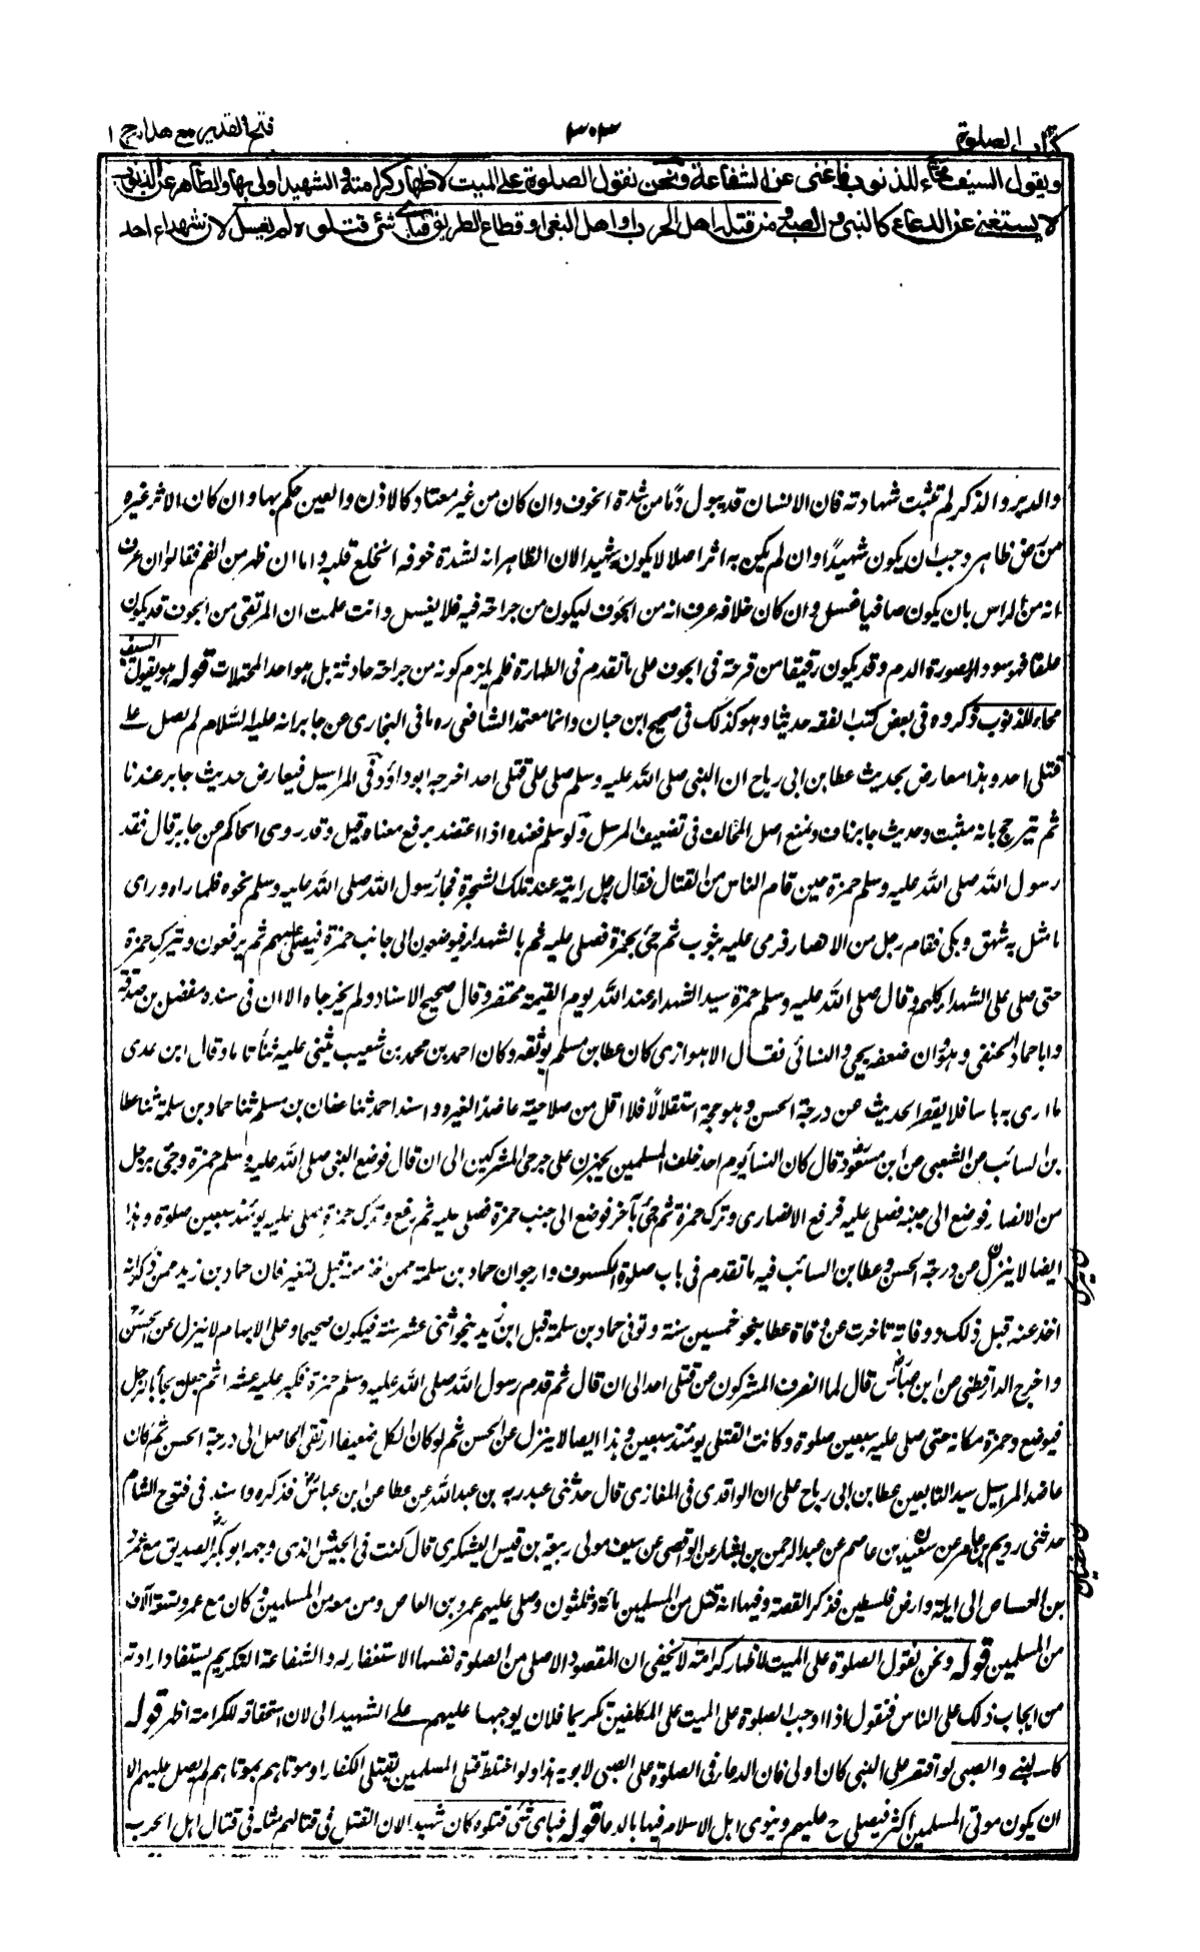 كتاب الصلوة
٣٠٣
فتح القدير مع هدايه ج ١
ويقول السيف محاء للذنوب فاغنى عن الشفاعة ونحن نقول الصلوة على الميت لاظهار كرامته والشهيد اولى بها والطاهر عن الذنوب
لا يستغنى عن الدعاء كالنبي والصبي ومن قتله اهل الحرب او اهل البغي او قطاع الطريق فباي شئ قتلوه لم يغسل لان شهداء احد
والدبر والذكر لم تثبت شهادته فان الانسان قد يبول دما من شدة الخوف وان كان من غير معتاد كالاذن والعين حكم بها وان كان الاثر غيره
من رض ظاهر وجب ان يكون شهيدًا وان لم يكن به اثر اصلا لا يكون شهيدا لان الظاهر انه لشدة خوفه انخلع قلبه واما ان ظهر من الفم فقالوا ان عرف
انه من الراس بان يكون صافيا غسل وان كان خلافه عرف انه من الجوف فيكون من جراحة فيه فلا يغسل وانت علمت ان المرتقى من الجوف قد يكون
علقا فهو سوداء بصورة الدم وقد يكون رقيقا من قرحة في الجوف على ما تقدم في الطهارة فلم يلزم كونه من جراحة حادثة بل هو احد المحتملات قوله هو يقول السيف
محاء للذنوب ذكروه في بعض كتب الفقه حديثا وهو كذلك في صحيح ابن حبان وانما معتمد الشافعي ره ما في البخاري عن جابر انه عليه السلام لم يصل على
قتلى احد وهذا معارض بحديث عطا بن ابي رباح ان النبي صلى الله عليه وسلم صلى على قتلى احد اخرجه ابو داؤد في المراسيل فيعارض حديث جابر عندنا
ثم يترجح بانه مثبت وحديث جابر ناف ونمنع اصل المخالف في تضعيف المرسل ولو سلم فعنده اذا اعتضد يرفع معناه قيل وقد روى الحاكم عن جابر قال فقد
رسول الله صلى الله عليه وسلم حمزة حين قام الناس من القتال فقال رجل رايته عند تلك الشجرة فجاء رسول الله صلى الله عليه وسلم نحوه فلما راه وراى
ما مثل به شهق وبكى فقام رجل من الانصار فرمى عليه بثوب ثم جئ بحمزة فصلى عليه ثم بالشهداء فيوضعون الى جانب حمزة فيصلى عليهم ثم يرفعون ويترك حمزة
حتى صلى على الشهداء كلهم وقال صلى الله عليه وسلم حمزة سيد الشهداء عند الله يوم القيمة مختصر وقال صحيح الاسناد ولم يخرجاه الا ان في سنده مفضل بن صدقة
وابا حماد الحنفي وهو وان ضعفه يحيى والنسائي فقد قال الاهوازي كان عطا بن مسلم يوثقه وكان احمد بن محمد بن شعيب يثني عليه ثناءً تاما وقال ابن عدي
ما ارى به باسا فلا يقصر الحديث عن درجة الحسن وهو حجة استقلالًا فلا اقل من صلاحيته عاضدا لغيره واسند احمد ثنا عفان بن مسلم ثنا حماد بن سلمة ثنا عطا
بن السائب عن الشعبي عن ابن مسعود قال كان النساء يوم احد خلف المسلمين يجهزن على جرحى المشركين الى ان قال فوضع النبي صلى الله عليه وسلم حمزة وجئ برجل
من الانصار فوضع الى جنبه فصلى عليه فرفع الانصاري وترك حمزة ثم جئ بآخر فوضع الى جنب حمزة فصلى عليه ثم رفع وترك حمزة صلى عليه يومئذ سبعين صلوة وهذا
ايضا لا ينزل عن درجة الحسن وعطا بن السائب فيه ما تقدم في باب صلوة الكسوف وارجو ان حماد بن سلمة ممن اخذ منه قبل التغير فان حماد بن زيد ممن ذكر انه
اخذ عنه قبل ذلك ووفاته تاخرت عن وفاة عطا بنحو خمسين سنة وتوفي حماد بن سلمة قبل ابن زيد بنحو اثني عشر سنة فيكون صحيحا وعلى الابهام لا ينزل عن الحسن
واخرج الدارقطني عن ابن عباس قال لما انصرف المشركون عن قتلى احد الى ان قال ثم قدم رسول الله صلى الله عليه وسلم حمزة فكبر عليه عشرا ثم جعل يجاء بالرجل
فيوضع وحمزة مكانه حتى صلى عليه سبعين صلوة وكانت القتلى يومئذ سبعين وهذا ايضا لا ينزل عن الحسن ثم لو كان الكل ضعيفا ارتقى الحاصل الى درجة الحسن ثم كان
عاضد المراسيل سيد التابعين عطا بن ابي رباح على ان الواقدي في المغازي قال حدثني عبد ربه بن عبد الله عن عطا عن ابن عباس فذكره واسند في فتوح الشام
حدثني رويم بن عامر عن سعيد بن عاصم عن عبد الرحمن بن بشار عن الواقصي عن سيف مولى ربيعة بن قيس اليشكري قال كنت في الجيش الذي وجهه ابو بكر الصديق مع عمرو
بن العاص الى ايلة وارض فلسطين فذكر القصة وفيها انه قتل من المسلمين مائة وثلثون وصلى عليهم عمرو بن العاص ومن معه من المسلمين وكان مع عمرو تسعة آلاف
من المسلمين قوله ونحن نقول الصلوة على الميت لاظهار كرامته لا يخفى ان المقصود الاصلي من الصلوة نفسها الاستغفار له والشفاعة والتكريم يستفاد ارادته
من ايجاب ذلك على الناس فنقول اذا اوجب الصلوة على الميت على المكلفين تكريما فلان يوجبها عليهم على الشهيد اولى لان استحقاقه للكرامة اظهر قوله
كالنبي والصبي لو اقتصر على النبي كان اولى فان الدعاء في الصلوة على الصبي لابويه هذا ولو اختلط قتلى المسلمين بقتلى الكفار او موتاهم بموتاهم لم يصل عليهم الا
ان يكون موتى المسلمين اكثر فيصلى ح عليهم وينوي اهل الاسلام فيها بالدعاء قوله فباي شئ قتلوه كان شهيدا لان القتل في قتالهم مثله في قتال اهل الحرب